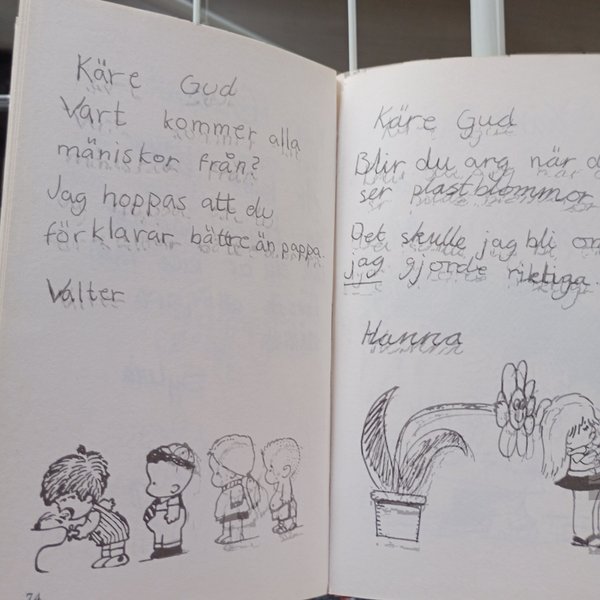 Käre Gud
Vart kommer alla
mäniskor från?
Jag hoppas att du
förklarar bättre än pappa.
Valter
74
Käre Gud
Blir du arg när
ser plastblommor
Det skulle jag bli
jag gjorde riktiga.
Hanna